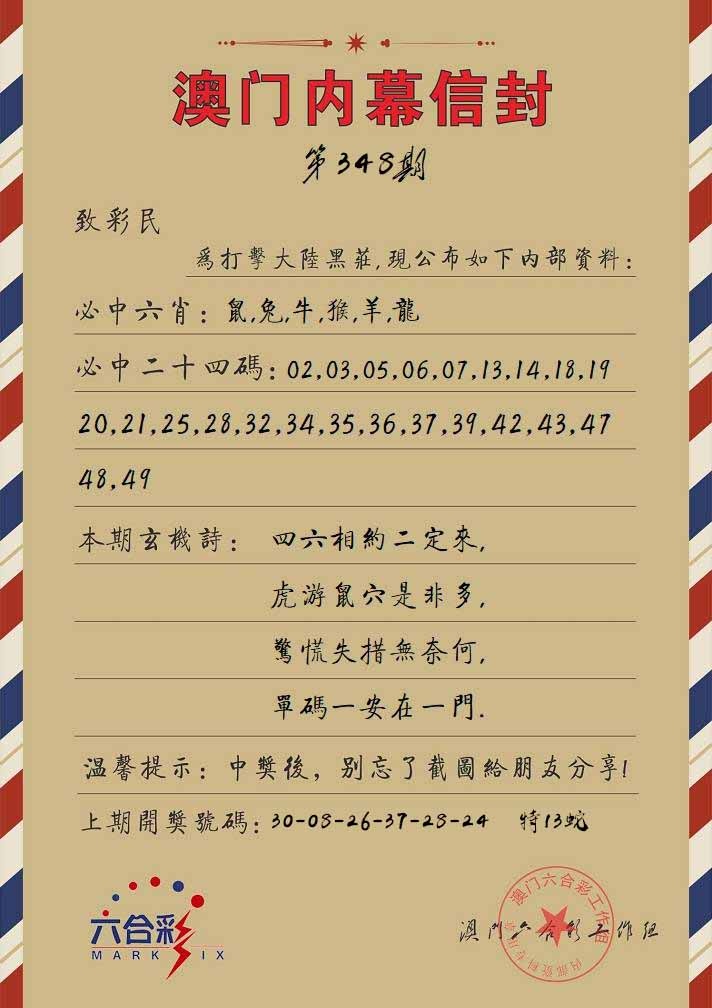 澳门内幕信封
第348期
致彩民
爲打擊大陸黑莊,現公布如下内部資料:
必中六肖:鼠,兔,牛,猴,羊,龍
必中二十四碼:02,03,05,06,07,13,14,18,19
20,21,25,28,32,34,35,36,37,39,42,43,47
48,49
本期玄機詩: 四六相約二定來,
虎游鼠穴是非多,
驚慌失措無奈何,
單碼一安在一門.
温馨提示:中獎後,别忘了截圖給朋友分享!
上期開獎號碼:30-08-26-37-28-24 特13蛇
六合彩
MARK SIX
澳门六合彩工作组
澳门六合彩工作组
内部资料专用章